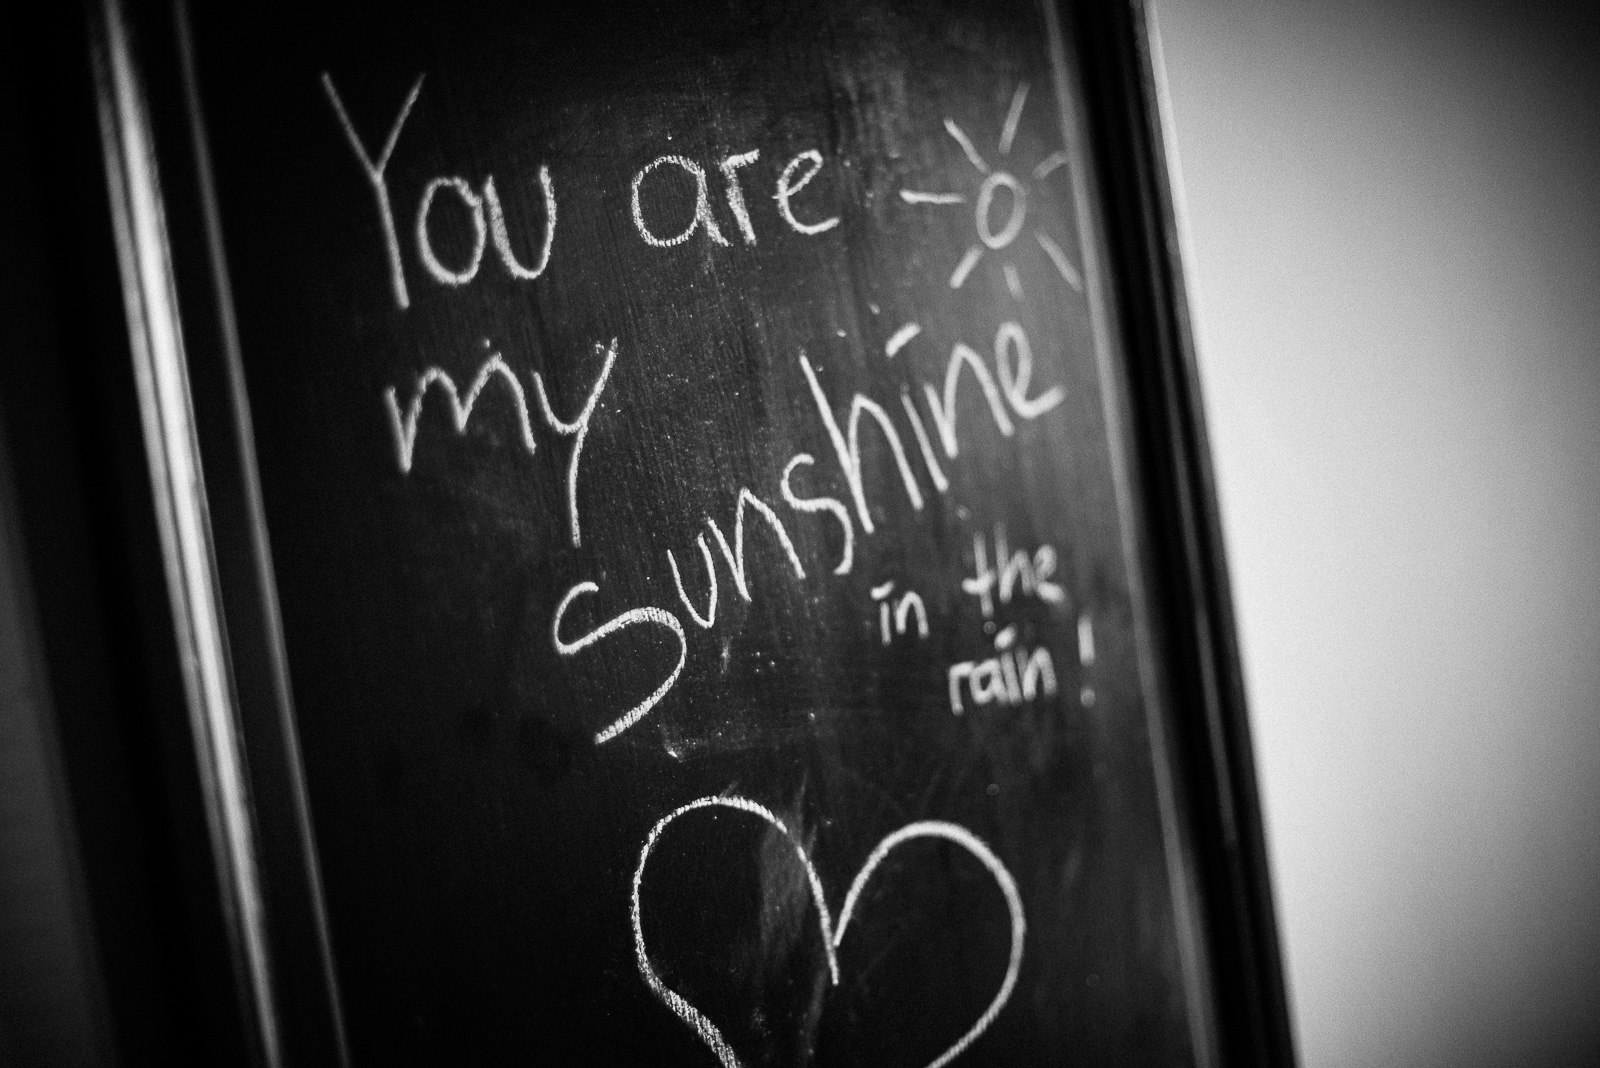 You are
my
Sunshine
in the
rain!